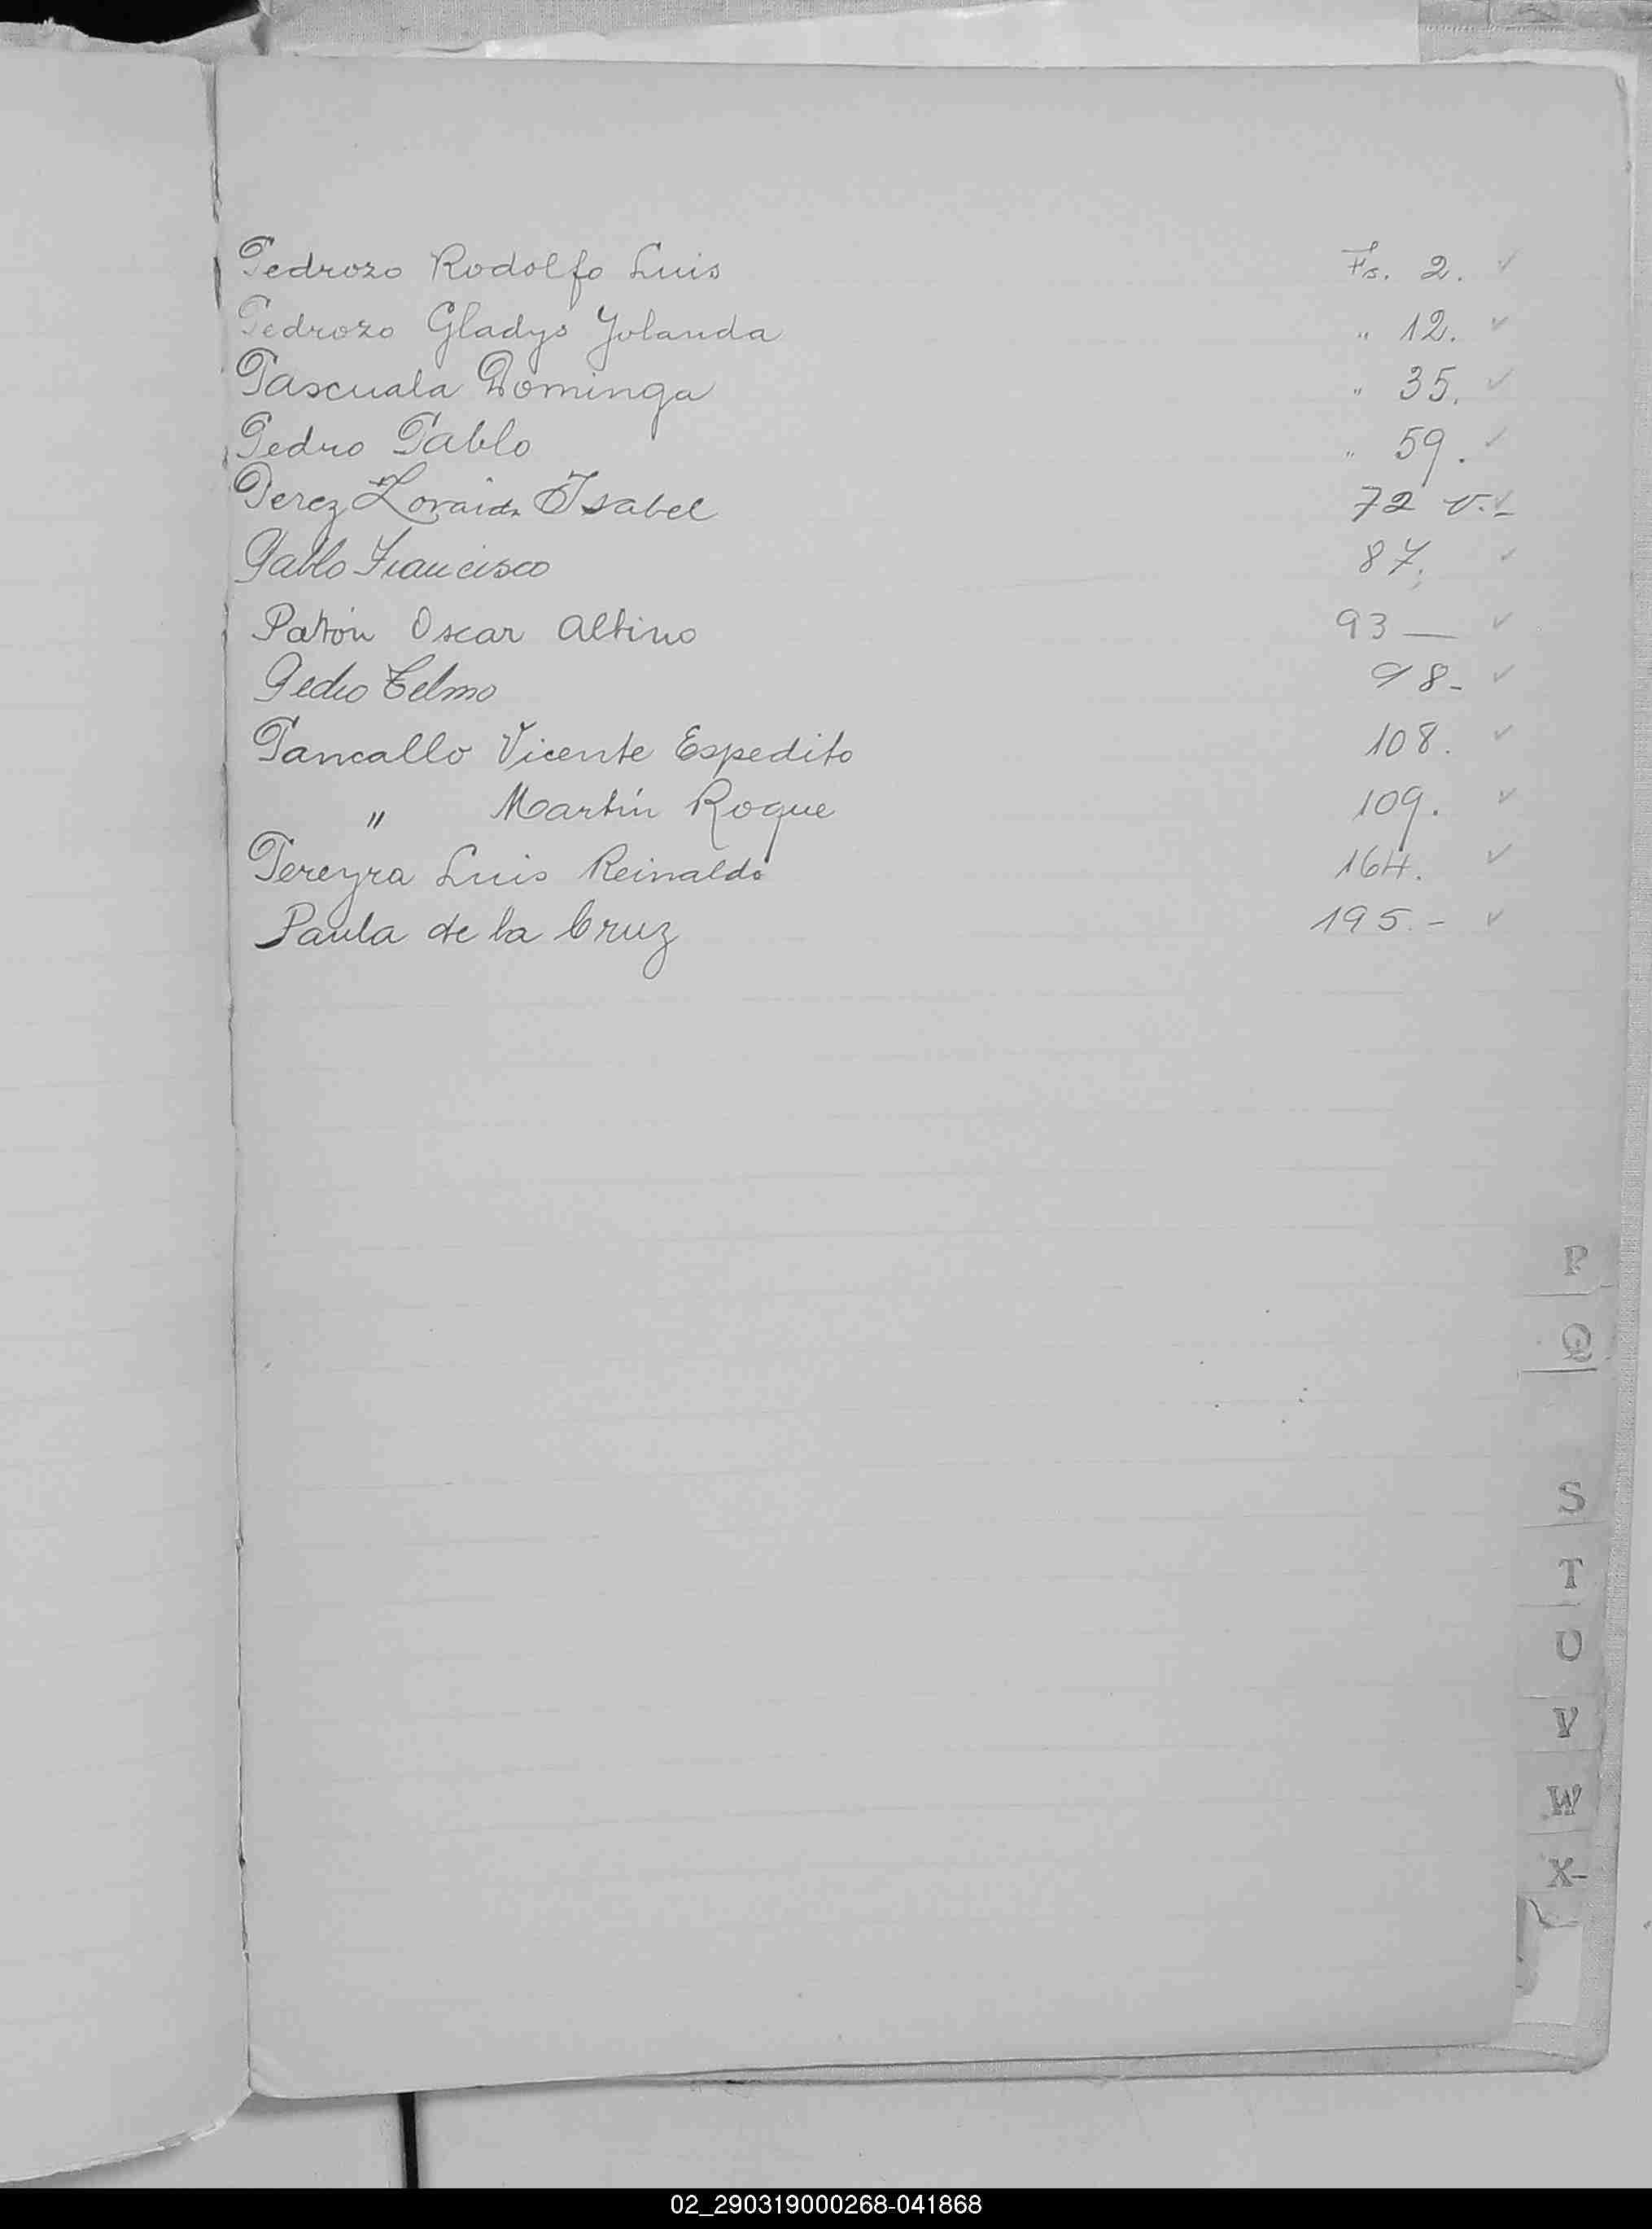 Pedrozo Rodolfo Luis Fs. 2. ✓
Pedrozo Gladys Yolanda " 12. ✓
Pascuala Dominga " 35. ✓
Pedro Pablo " 59. ✓
Perez Isabel 72 v.- ✓
Pablo Francisco 87. ✓
Patrón Oscar Albino 93 — ✓
Pedro Telmo 98- ✓
Pancallo Vicente Espedito 108. ✓
" Martín Roque 109. ✓
Pereyra Luis Reinaldo 164. ✓
Paula de la Cruz 195.- ✓
P
Q
S
T
U
V
W
X-
02_290319000268-041868